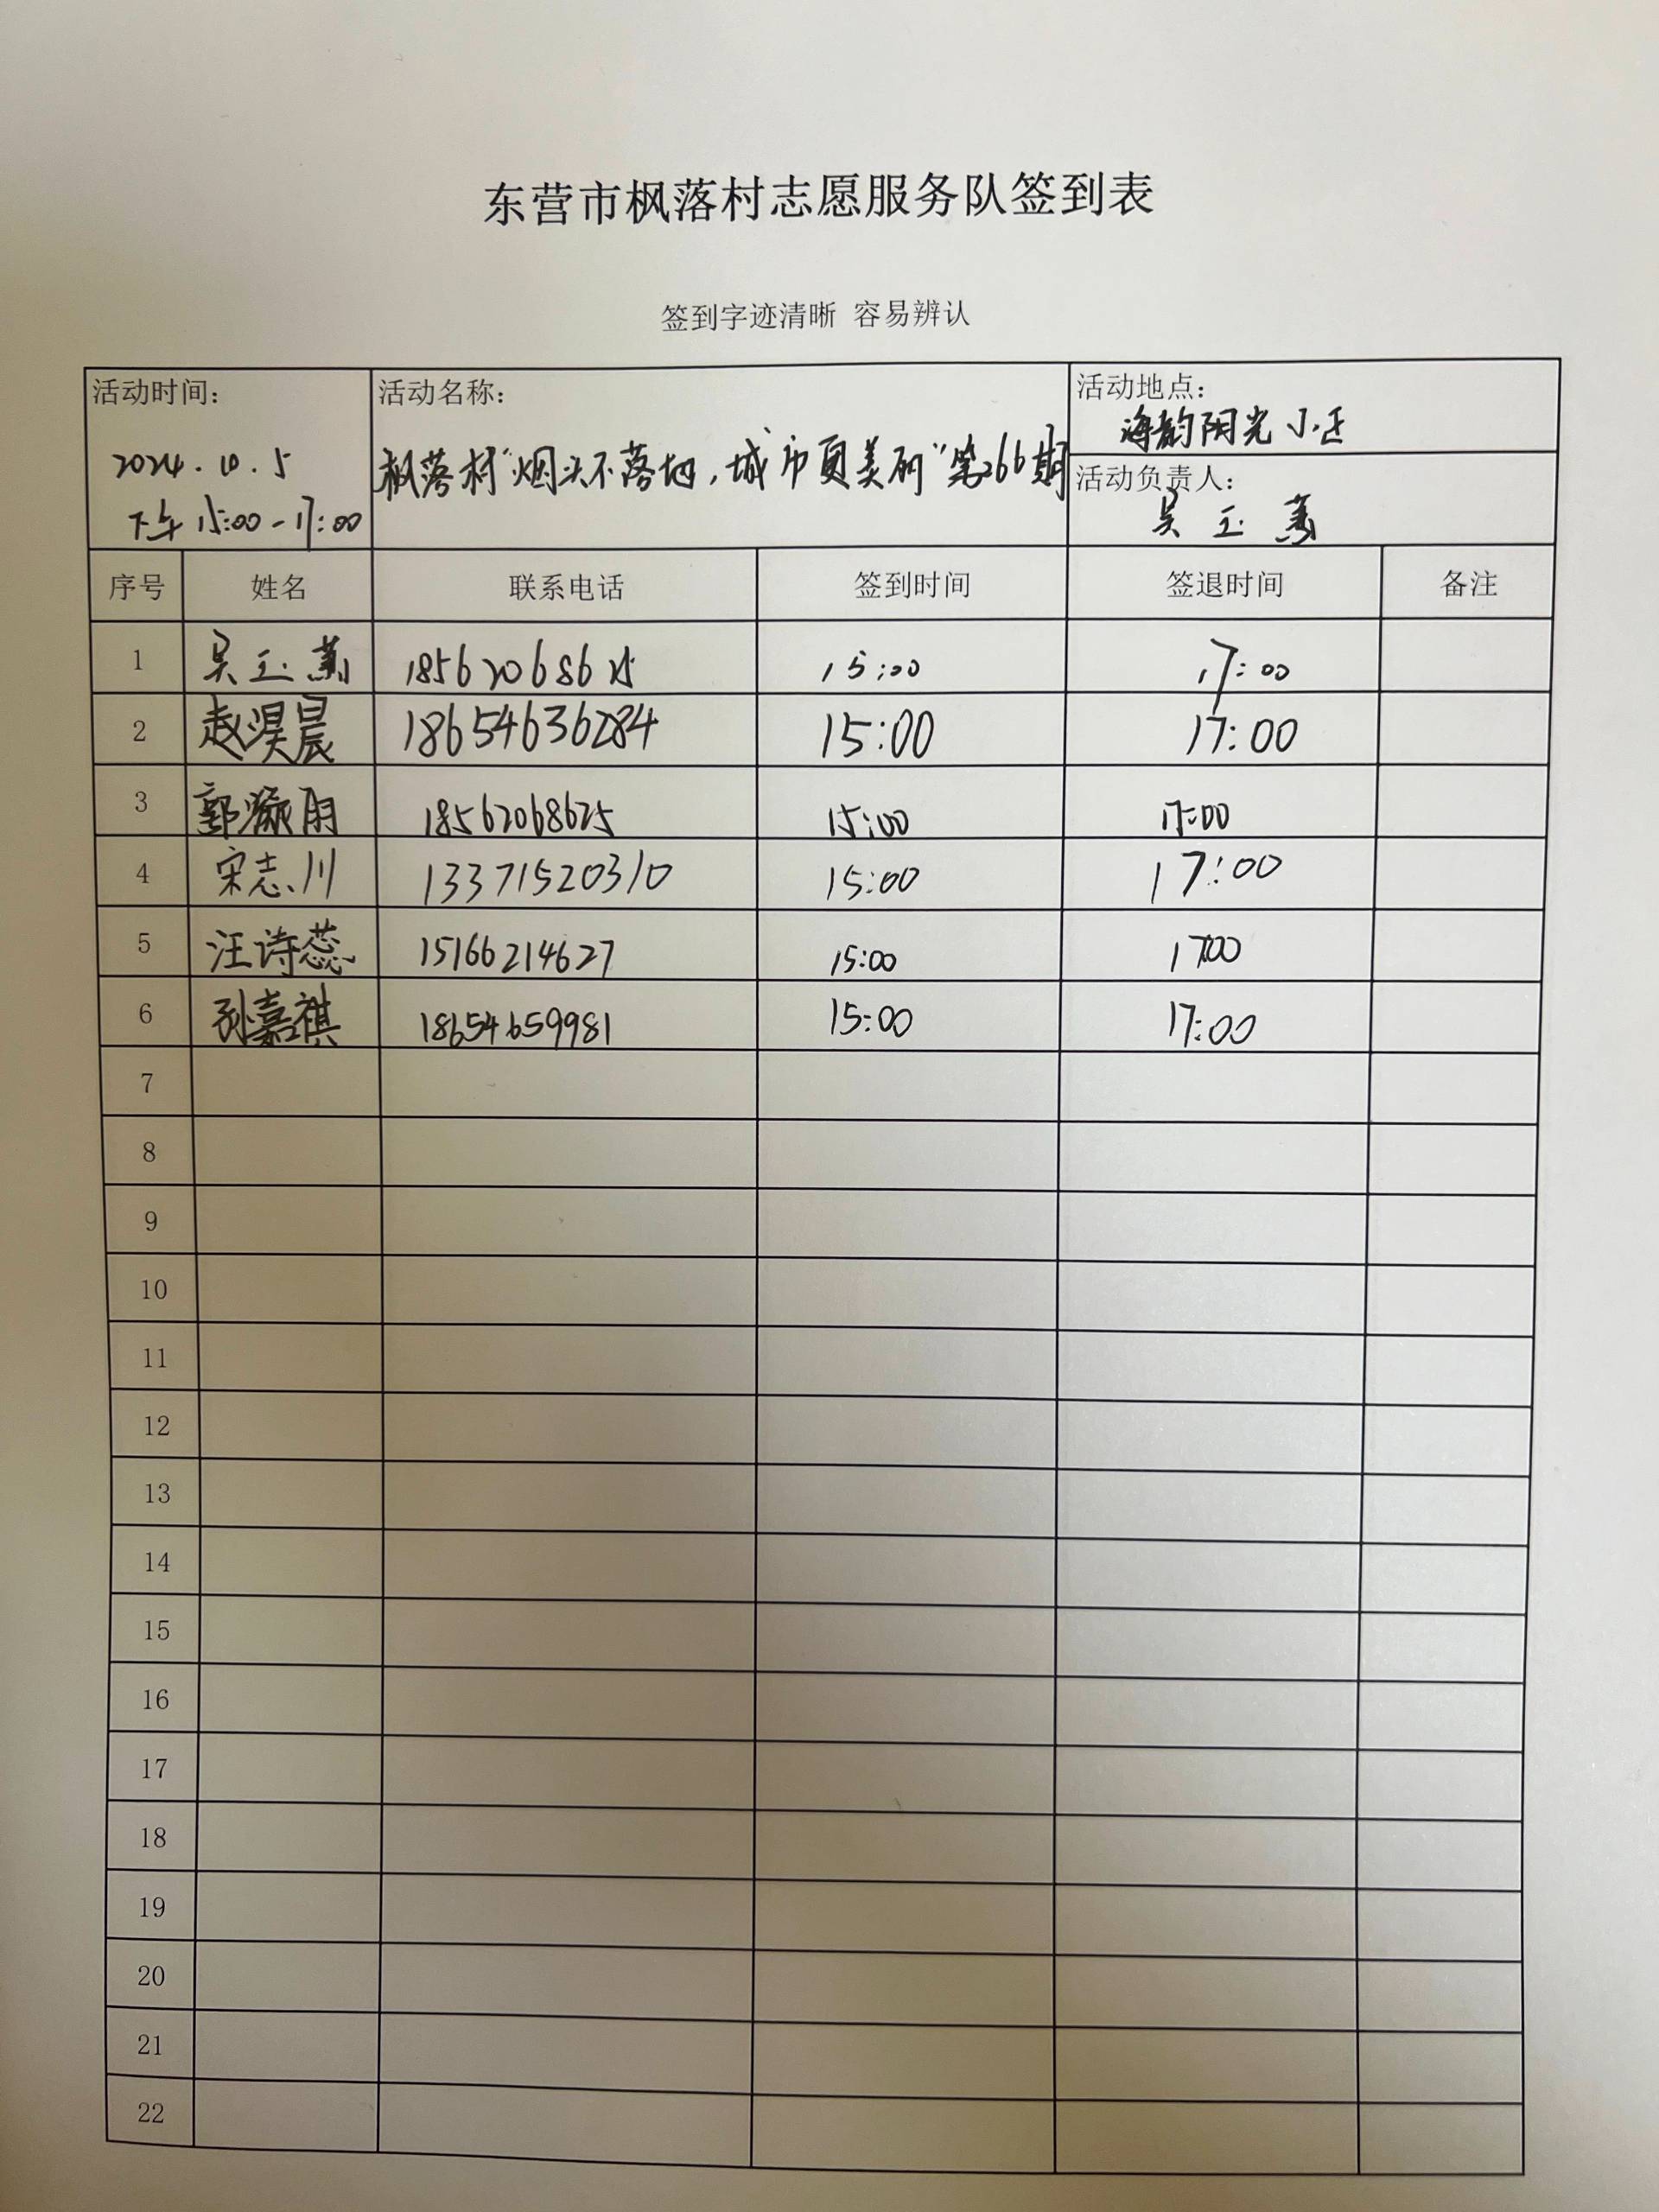 东营市枫落村志愿服务队签到表
签到字迹清晰 容易辨认
活动时间: 活动名称: 活动地点:
海韵阳光小区
2024.10.5 枫落村"烟头不落地,城市更美丽"第266期
活动负责人:
下午 15:00-17:00 吴玉
序号 姓名 联系电话 签到时间 签退时间 备注
1 吴玉 18562068625 15:00 17:00
2 赵淏晨 18654636284 15:00 17:00
3 郭 18562068625 15:00 17:00
4 宋志川 13371520310 15:00 17:00
5 汪诗蕊 15166214627 15:00 1700
6 孙嘉祺 18654659981 15:00 17:00
7
8
9
10
11
12
13
14
15
16
17
18
19
20
21
22